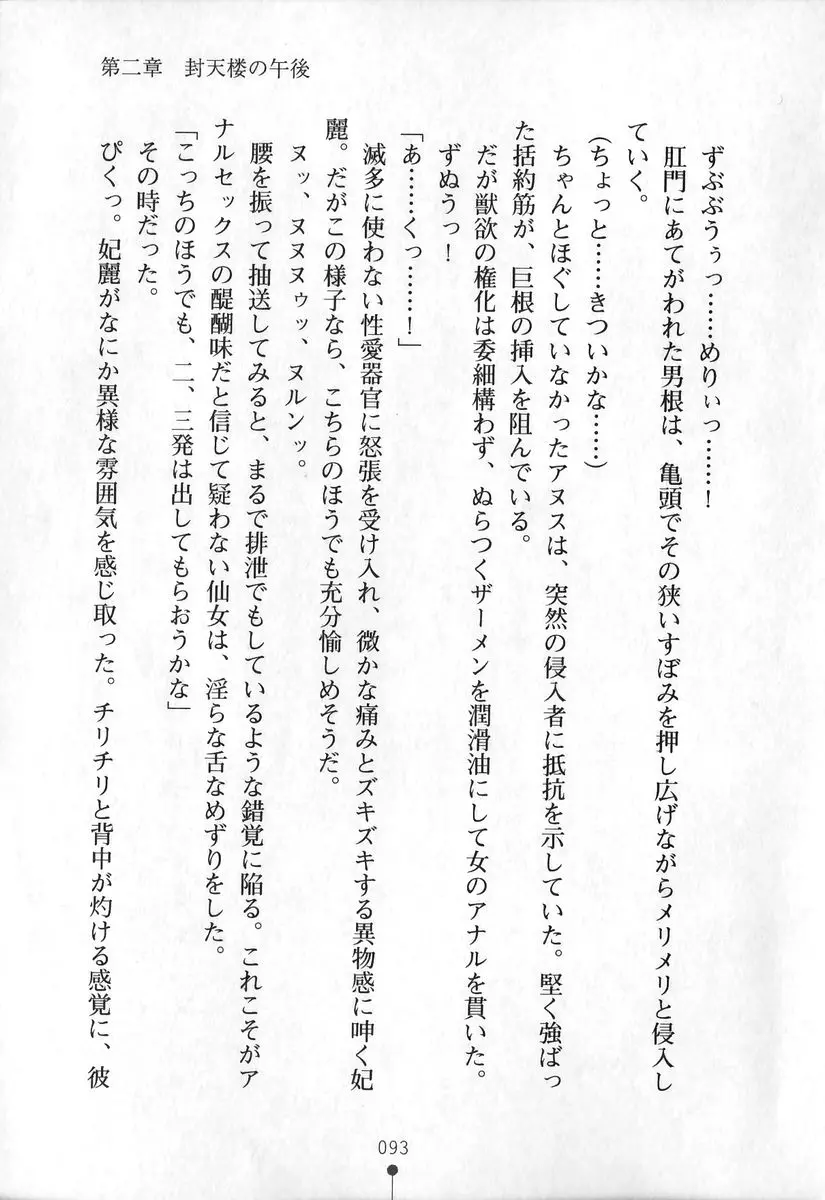 第二章　封天楼の午後
ずぶぶうぅっ……めりぃっ……！
肛門にあてがわれた男根は、亀頭でその狭いすぼみを押し広げながらメリメリと侵入し
ていく。
（ちょっと……きついかな……）
ちゃんとほぐしていなかったアヌスは、突然の侵入者に抵抗を示していた。堅く強ばっ
た括約筋が、巨根の挿入を阻んでいる。
だが獣欲の権化は委細構わず、ぬらつくザーメンを潤滑油にして女のアナルを貫いた。
ずぬうっ！
「あ……くっ……！」
滅多に使わない性愛器官に怒張を受け入れ、微かな痛みとズキズキする異物感に呻く妃
麗。だがこの様子なら、こちらのほうでも充分愉しめそうだ。
ヌッ、ヌヌヌゥッ、ヌルンッ。
腰を振って抽送してみると、まるで排泄でもしているような錯覚に陥る。これこそがア
ナルセックスの醍醐味だと信じて疑わない仙女は、淫らな舌なめずりをした。
「こっちのほうでも、二、三発は出してもらおうかな」
その時だった。
ぴくっ。妃麗がなにか異様な雰囲気を感じ取った。チリチリと背中が灼ける感覚に、彼
093